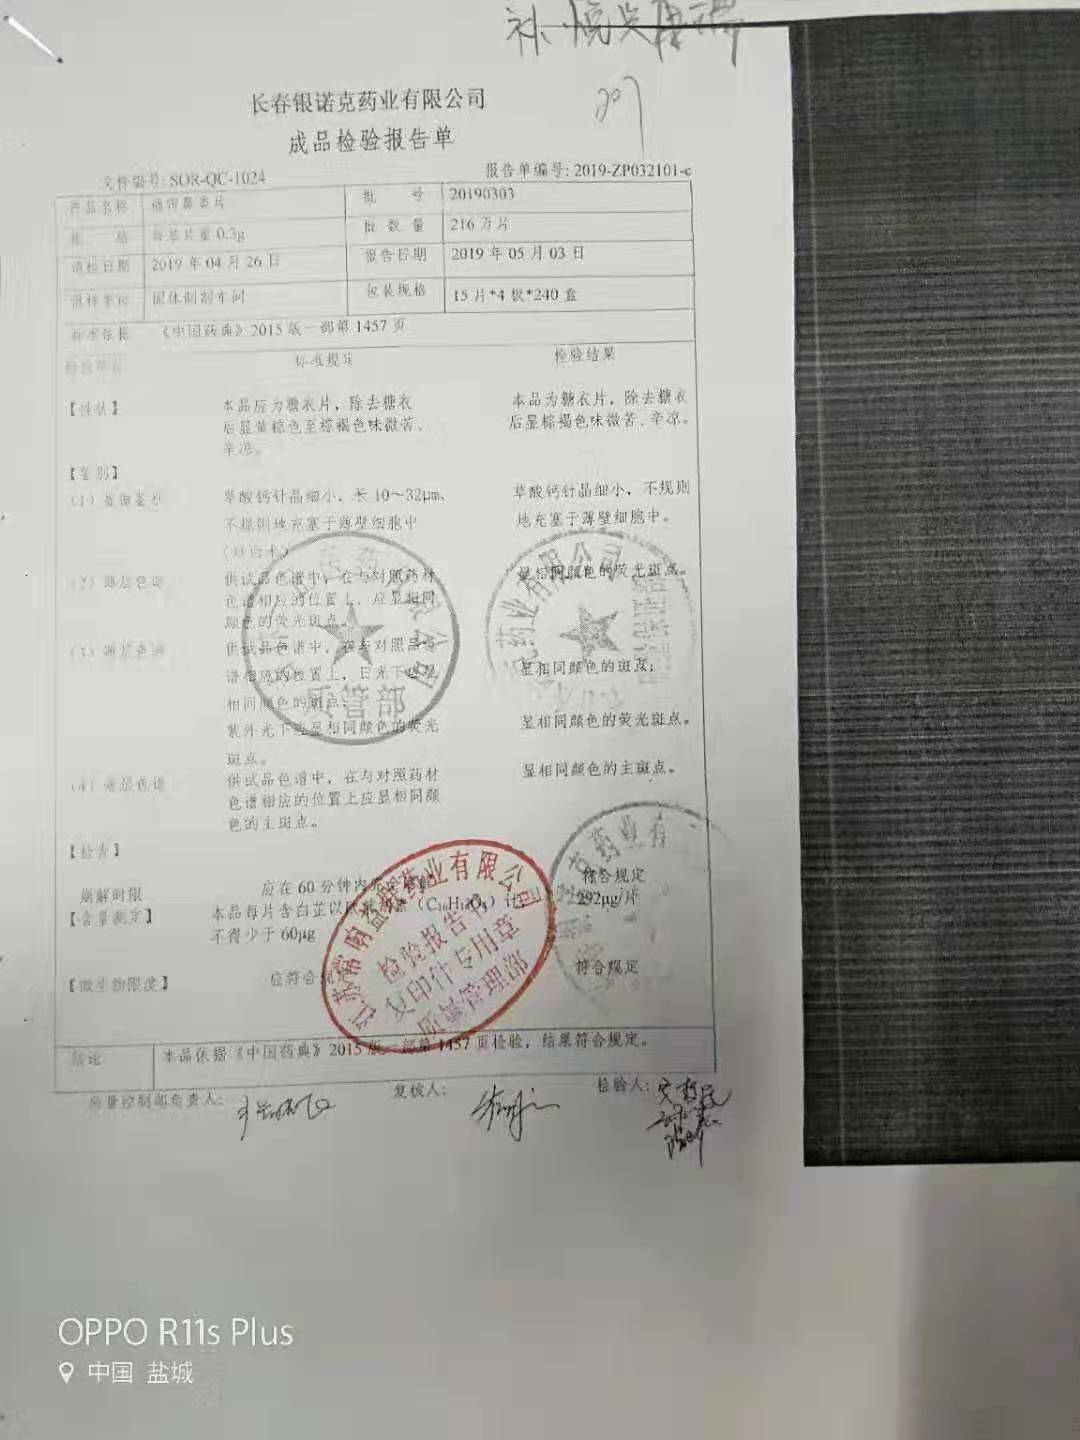 长春银诺克药业有限公司
成品检验报告单
文件编号: SOR-QC-1024 报告单编号: 2019-ZP032101-c
产品名称 片 批 号 20190303
规 格 每基片重0.3g 批 数 量 216万片
请检日期 2019 年 04 月 26 日 报告日期 2019 年 05 月 03 日
固体制剂车间 包装规格 15 片*4 板*240 盒
标准依据 《中国药典》2015 版一部第 1457 页
检验项目 标准规定 检验结果
【性状】 本品应为糖衣片，除去糖衣 本品为糖衣片，除去糖衣
后显黄棕色至棕褐色味微苦、 后显棕褐色味微苦、辛凉。
辛凉。
【鉴别】
(1) 显微鉴别 草酸钙针晶细小，长 10～32μm, 草酸钙针晶细小，不规则
不规则地充塞于薄壁细胞中 地充塞于薄壁细胞中。
(炒白术)
(2) 薄层色谱 供试品色谱中，在与对照药材 显相同颜色的荧光斑点。
色谱相应的位置上，应显相同
颜色的荧光斑点。
(3) 薄层色谱 供试品色谱中，在与对照品色
谱相应的位置上，日光下 显 显相同颜色的斑点;
相同颜色的斑点;
紫外光下 显相同颜色的荧光 显相同颜色的荧光斑点。
斑点。
(4) 薄层色谱 供试品色谱中，在与对照药材 显相同颜色的主斑点。
色谱相应的位置上应显相同颜
色的主斑点。
【检查】
崩解时限 应在 60 分钟内 符合规定
【含量测定】 本品每片含白芷以欧 计， 292μg/片
不得少于 60μg
【微生物限度】 应符合规 符合规定
结论 本品依据《中国药典》2015 版一部第 1457 页检验，结果符合规定。
质量控制部负责人: 复核人: 检验人:
质管部
药业有限公司
药业有
药业有限公司
检验报告书
复印件专用章
质量管理部
OPPO R11s Plus
中国 盐城